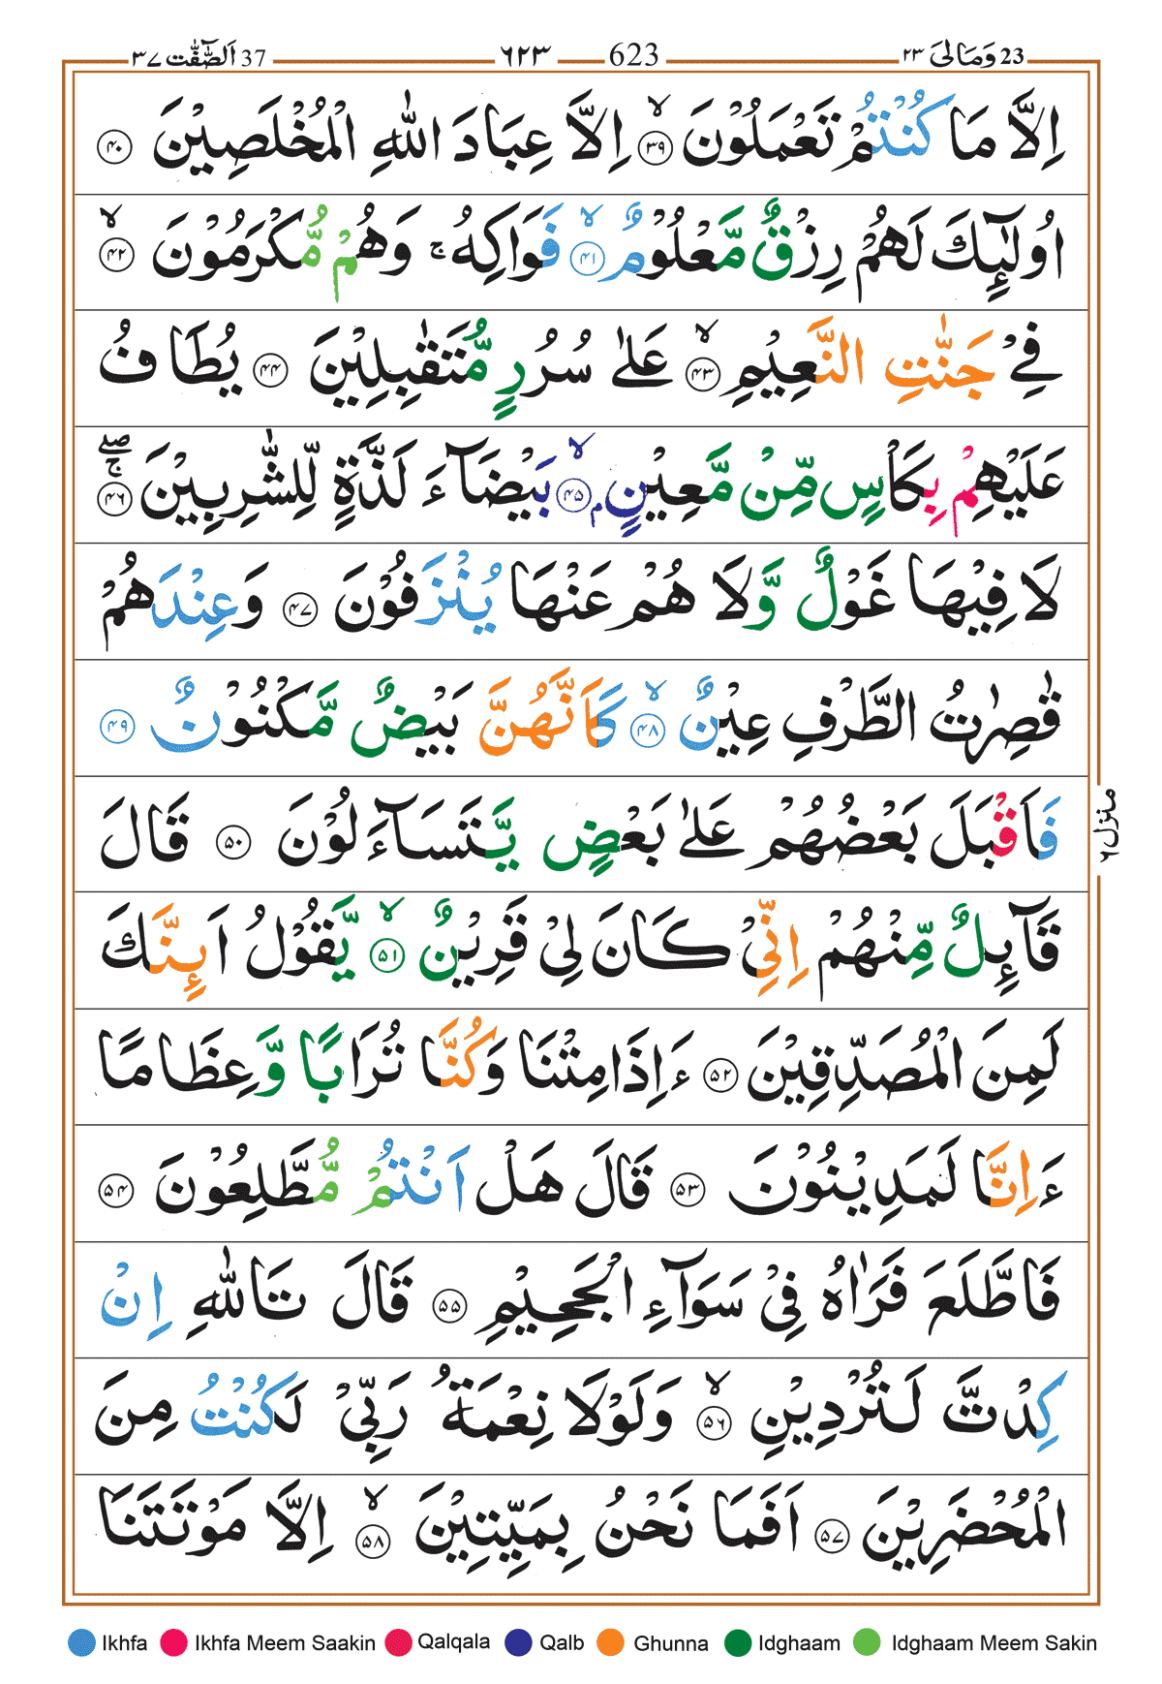 اَلصّٰٓفّٰت ٣٧ 37 ۶۲۳ 623 وَمَالِیَ ۲۳ 23
اِلَّا مَا كُنْتُمْ تَعْمَلُوْنَ ۙ‏﴿۳۹﴾ اِلَّا عِبَادَ اللّٰهِ الْمُخْلَصِيْنَ ﴿۴۰﴾
اُولٰٓئِكَ لَهُمْ رِزْقٌ مَّعْلُوْمٌ ۙ‏﴿۴۱﴾ فَوَاكِهُ ۚ وَهُمْ مُّكْرَمُوْنَ ۙ‏﴿۴۲﴾
فِيْ جَنّٰتِ النَّعِيْمِ ۙ‏﴿۴۳﴾ عَلٰى سُرُرٍ مُّتَقٰبِلِيْنَ ﴿۴۴﴾ يُطَافُ
عَلَيْهِمْ بِكَاْسٍ مِّنْ مَّعِيْنٍۭ ۙ‏﴿۴۵﴾ بَيْضَآءَ لَذَّةٍ لِّلشّٰرِبِيْنَ ۚۖ‏﴿۴۶﴾
لَا فِيْهَا غَوْلٌ وَّلَا هُمْ عَنْهَا يُنْزَفُوْنَ ﴿۴۷﴾ وَعِنْدَهُمْ
قٰصِرٰتُ الطَّرْفِ عِيْنٌ ۙ‏﴿۴۸﴾ كَاَنَّهُنَّ بَيْضٌ مَّكْنُوْنٌ ﴿۴۹﴾
فَاَقْبَلَ بَعْضُهُمْ عَلٰى بَعْضٍ يَّتَسَآءَلُوْنَ ﴿۵۰﴾ قَالَ
قَآئِلٌ مِّنْهُمْ اِنِّيْ كَانَ لِيْ قَرِيْنٌ ۙ‏﴿۵۱﴾ يَّقُوْلُ اَئِنَّكَ
لَمِنَ الْمُصَدِّقِيْنَ ﴿۵۲﴾ ءَاِذَا مِتْنَا وَكُنَّا تُرَابًا وَّعِظَامًا
ءَاِنَّا لَمَدِيْنُوْنَ ﴿۵۳﴾ قَالَ هَلْ اَنْتُمْ مُّطَّلِعُوْنَ ﴿۵۴﴾
فَاطَّلَعَ فَرَاٰهُ فِيْ سَوَآءِ الْجَحِيْمِ ﴿۵۵﴾ قَالَ تَاللّٰهِ اِنْ
كِدْتَّ لَتُرْدِيْنِ ۙ‏﴿۵۶﴾ وَلَوْلَا نِعْمَةُ رَبِّيْ لَكُنْتُ مِنَ
الْمُحْضَرِيْنَ ﴿۵۷﴾ اَفَمَا نَحْنُ بِمَيِّتِيْنَ ۙ‏﴿۵۸﴾ اِلَّا مَوْتَتَنَا
منزل ۶
Ikhfa Ikhfa Meem Saakin Qalqala Qalb Ghunna Idghaam Idghaam Meem Sakin